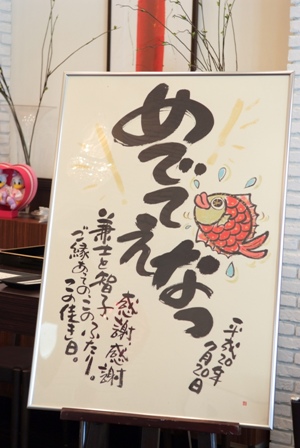 めでてえなっ
兼士と智子、
ご縁あるのこのふたり。
この佳き日。
感謝、感謝
平成20年
9月20日